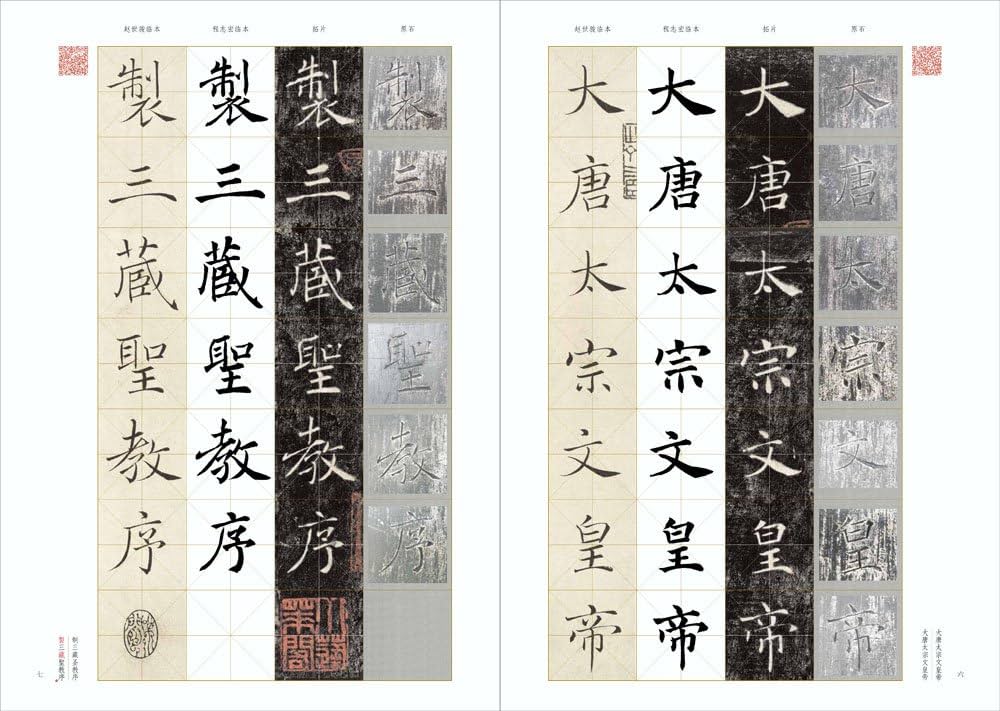 赵世骏临本 程志宏临本 拓片 原石
大唐太宗文皇帝
大唐太宗文皇帝
大唐太宗文皇帝
大唐太宗文皇帝
大唐太宗文皇帝
大唐太宗文皇帝
六
赵世骏临本 程志宏临本 拓片 原石
製三藏聖教序
製三藏聖教序
製三藏聖教序
製三藏聖教序
制三藏圣教序
製三藏聖教序
七